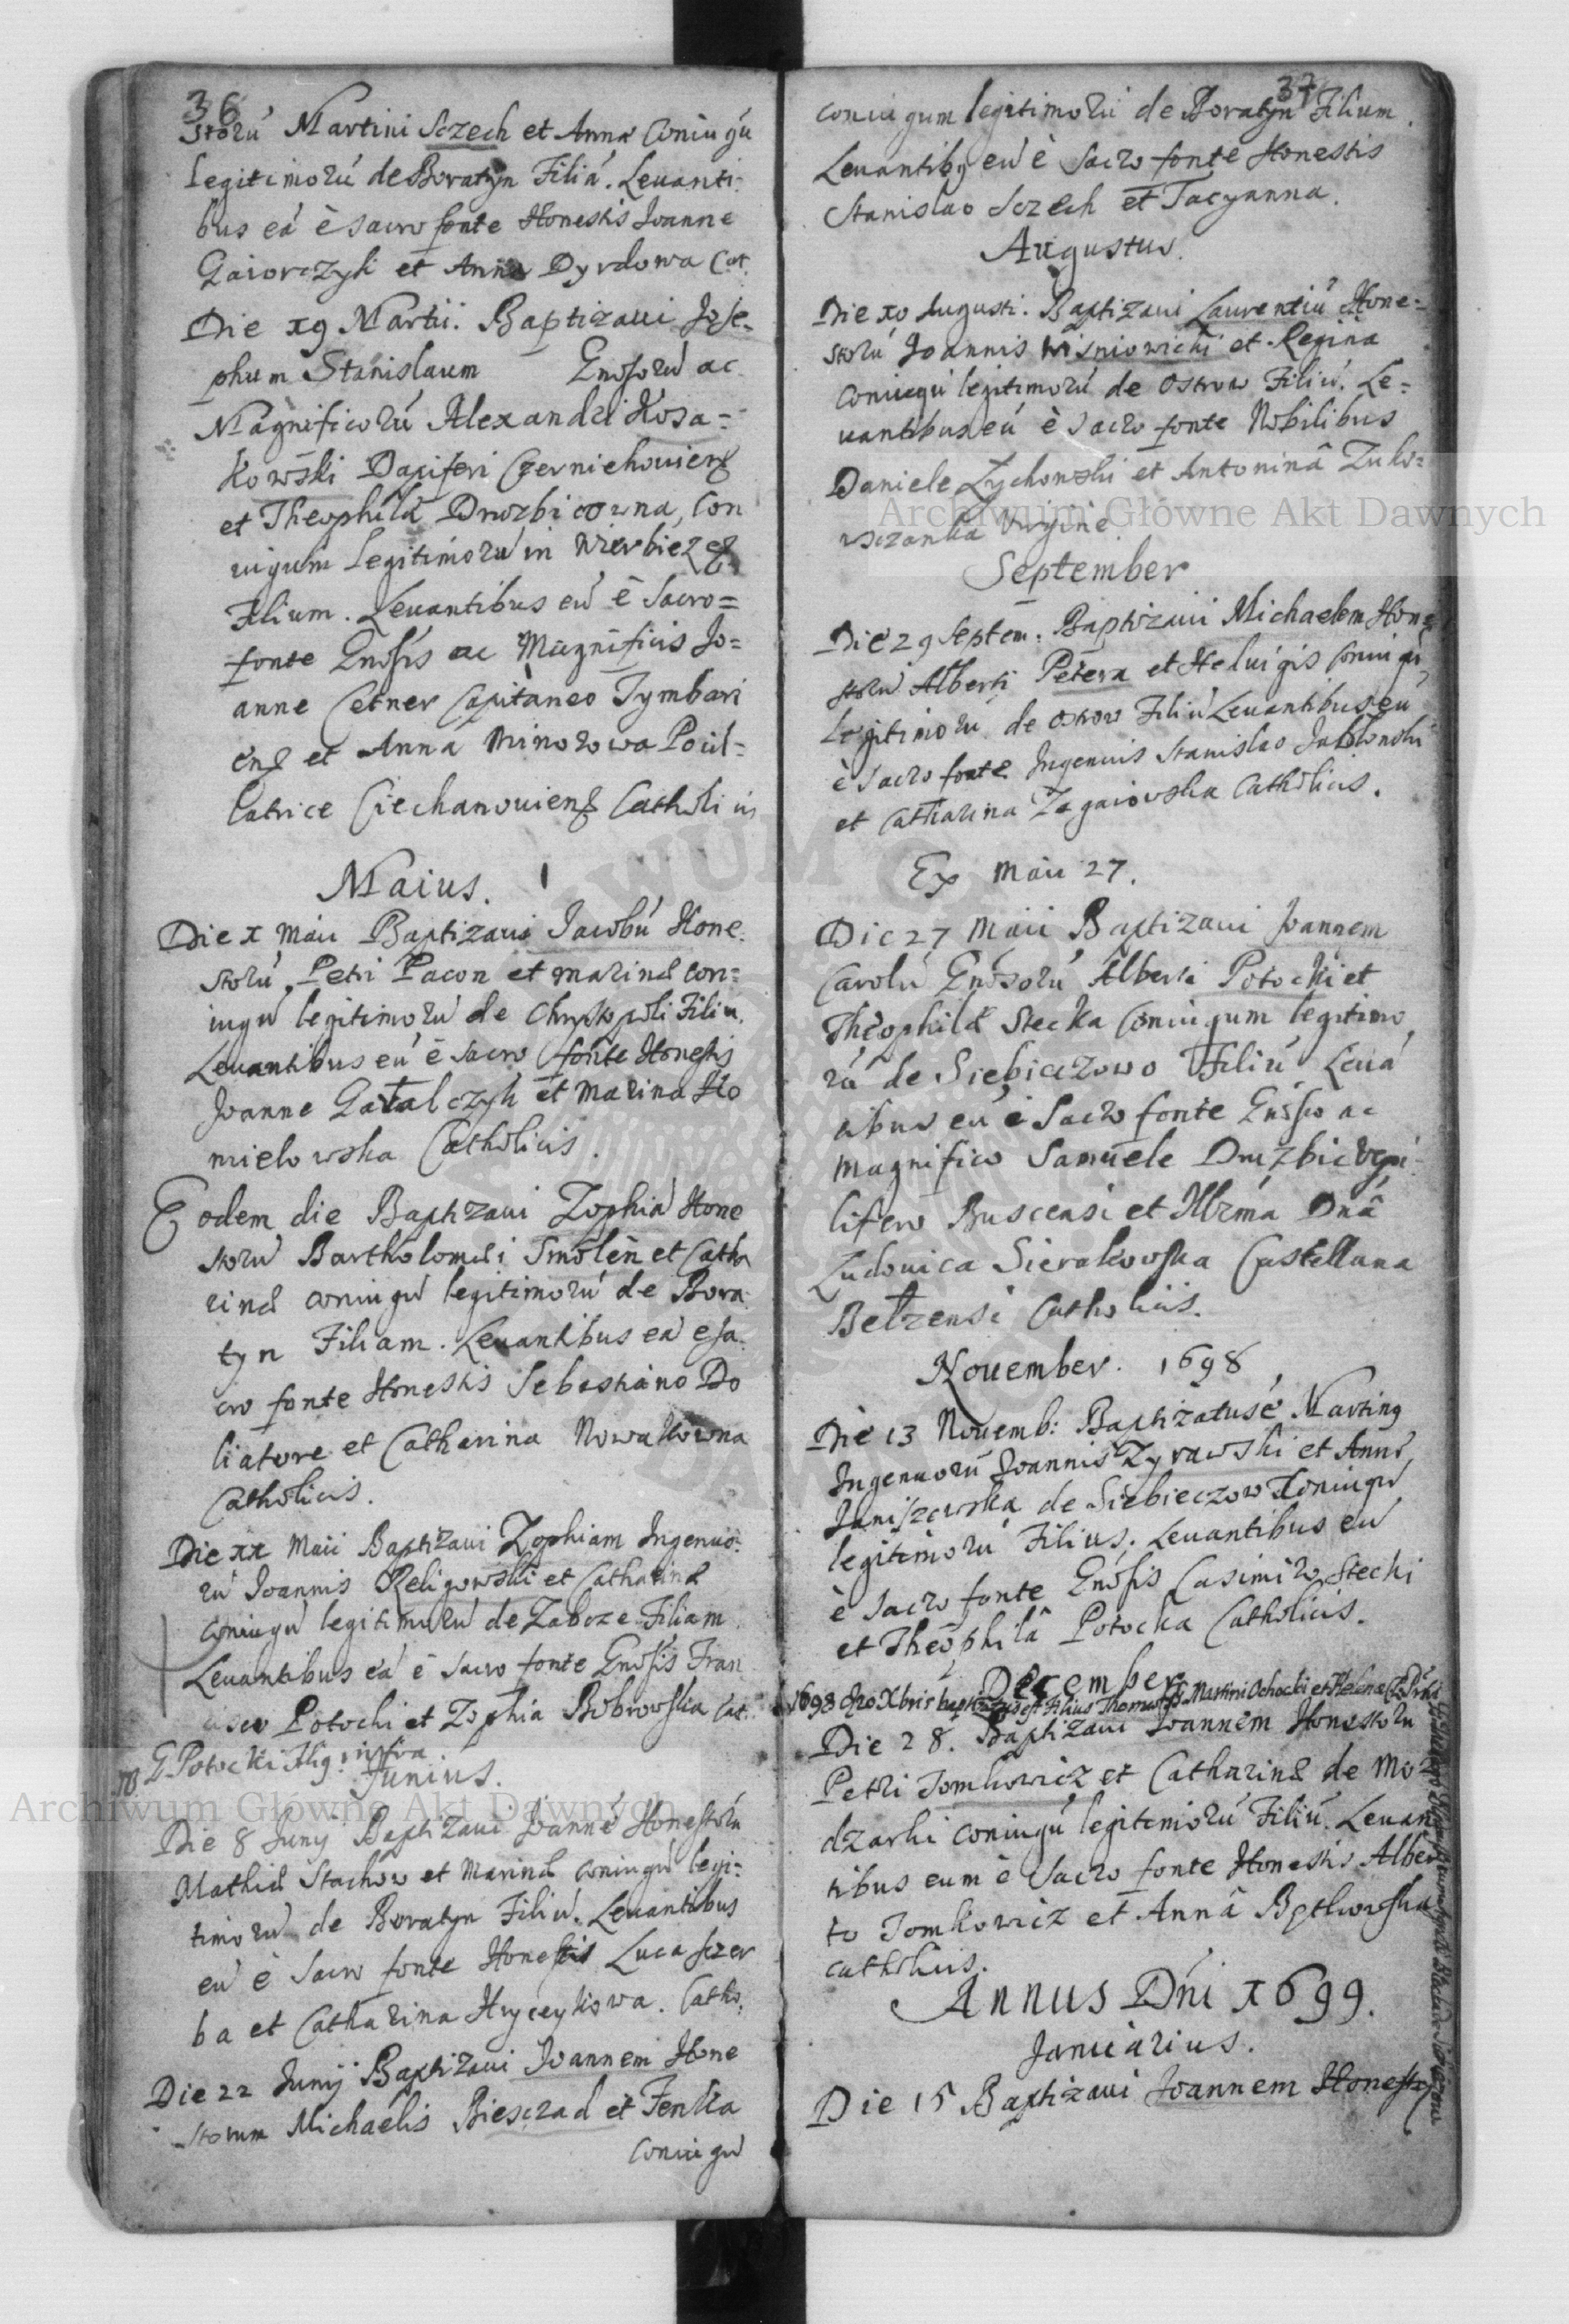 36
storú Martini Sczech et Anna Coniugú
legitimorú de Boratyn Filiá. Leuanti-
bus eá è sacro fonte Honestis Joanne
Gaiorczyk et Anna Dyrdowa Cat.
Die x9 Martii. Baptizaui Jose-
phum Stanislaum Gnosorú ac
Magnificorú Alexandri Kosa=
kowski Dapiferi Czerniehouiens
et Theophilá Druzbicowna, Con
iugum legitimorú in Wierbiez
Filium. Leuantibus eú è Sacro=
fonte Gnosis ac Magnificis Jo=
anne Cetner Capitaneo Tymbari
ens et Anna Minorowa Pocil=
latrice Ciechanouiens Catholicis
Maius.
Die x Maii Baptizaui Jacobú Hone-
storú Petri Pacon et Marinæ con=
iugú legitimorú de Chrystopoli Filiú.
Leuantibus eú è sacro fonte Honestis
Joanne Gatalczyk et Marina Ho
mielowska Catholicis.
Eodem die Baptizaui Zophiá Hone
storú Bartholomæi Smolen et Catha
rinæ coniugú legitimorú de Bora
tyn Filiam. Leuantibus eá e sa
cro fonte Honestis Sebastiano Do
liatore et Catharina Nowakowna
Catholicis.
Die xx Maii Baptizaui Zophiam Ingenuo-
rú Joannis Religowski et Catharinæ
coniugú legitimorú de Zaboze Filiam
Leuantibus eá è sacro fonte Gnosis Fran
cisco Potocki et Zophia Bobrowska Cat.
NB G. Potocki Alig: infra.
Junius.
Die 8 Junij Baptizaui Joanné Honestorú
Mathiæ Stachow et Marinæ coniugú legi=
timorú de Boratyn Filiú. Leuantibus
eú è sacro fonte Honestis Luca Sczer
ba et Catharina Hryceykowa. Catho.
Die 22 Junij Baptizaui Joannem Hone
storum Michaelis Biesczad et Fenka
Coniugú
37
coniugum legitimorú de Boratyn Filium.
Leuantibus eú è sacro fonte Honestis
Stanislao Sczech et Tacyanna.
Augustus.
Die x0 Augusti. Baptizaui Laurentiú Hone=
storú Joannis Wisniowicki et Regina
Coniugú legitimorú de Ostrow Filiú. Le=
uantibus eú è sacro fonte Nobilibus
Daniele Zychonski et Antoninâ Zuko=
wsczanka Virgine.
September
Die 29 Septem: Baptizaui Michaelem Hone
storú Alberti Petera et Heduigis Coniugú
legitimorú de Ostrow Filiú Leuantibus eú
è sacro fonte Ingenuis Stanislao Jablonski
et Catharina Zagaiowska Catholicis.
Ex Maii 27.
Die 27 Maii Baptizaui Joannem
Carolú Gnosorú Alberti Potocki et
Theophilæ Stecka Coniugum legitimo
rú de Siebieczowo Filiú Leuá
tibus eú è Sacro fonte Gnoso ac
Magnifico Samuele Druzbic Vexi
lifero Buscensi et Illrma Dnâ
Ludouica Sierakowska Castellana
Belzensi Catholicis.
Nouember. 1698
Die 13 Nouemb: Baptizatus é Martin9
Ingenuorú Joannis Zyrawski et Annæ
Janiszewska de Siebieczow Coniugú
legitimorú Filius, Leuantibus eú
è sacro fonte Gnosis Casimiro Stecki
et Theophilâ Potocka Catholicis.
December
1698 Xbris baptizatus est Filius Thomas Martini Ochocki et Helenæ
Die 28. Baptizaui Joannem Honestorú
Petri Tomkowicz et Catharinæ de Mo
dzarki coniugú legitimorú Filiú. Leuan
tibus eum è Sacro fonte Honestis Alber
to Tomkowicz et Annâ
catholicis.
Annus Dni 1699.
Januarius.
Die 15 Baptizaui Joannem Honesto